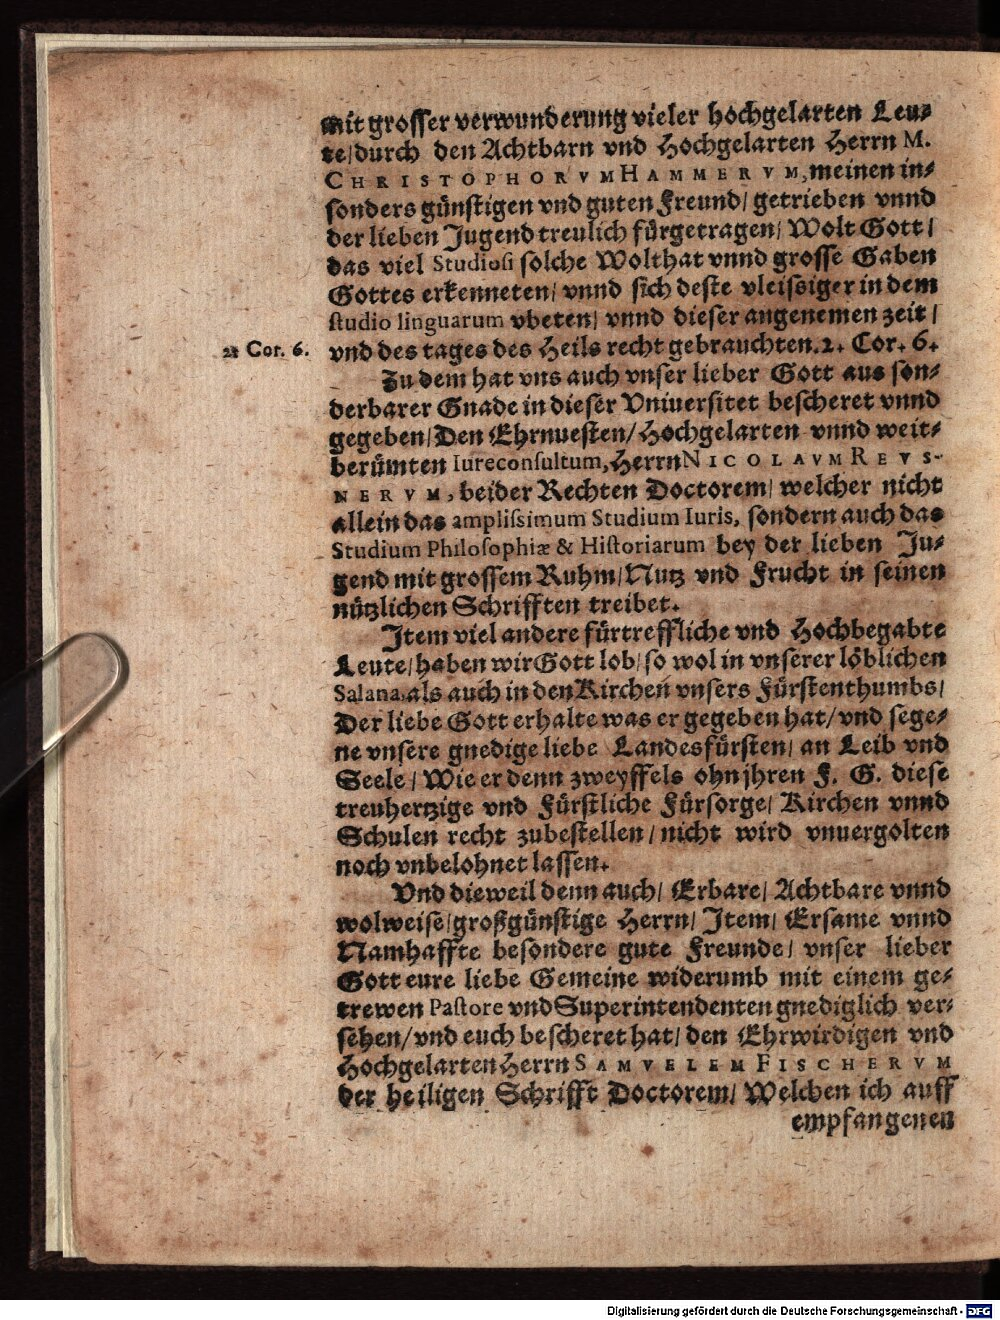 mit grosser verwunderung vieler hochgelarten Leu-
te/durch den Achtbarn vnd Hochgelarten Herrn M.
CHRISTOPHORVM HAMMERVM, meinen in-
sonders günstigen vnd guten Freund/ getrieben vnnd
der lieben Jugend treulich fürgetragen/ Wolt Gott/
das viel Studiosi solche Wolthat vnnd grosse Gaben
Gottes erkenneten/ vnnd sich deste vleissiger in dem
studio linguarum vbeten/ vnnd dieser angenemen zeit/
2. Cor. 6.
vnd des tages des Heils recht gebrauchten. 2. Cor. 6.
Zu dem hat vns auch vnser lieber Gott aus son-
derbarer Gnade in dieser Vniuersitet bescheret vnnd
gegeben/ Den Ehrnuesten/ Hochgelarten vnnd weit-
berümten Iureconsultum, Herrn NICOLAVM REVS-
NERVM, beider Rechten Doctorem/ welcher nicht
allein das amplissimum Studium Iuris, sondern auch das
Studium Philosophiæ & Historiarum bey der lieben Ju-
gend mit grossem Ruhm/ Nutz vnd Frucht in seinen
nützlichen Schrifften treibet.
Item viel andere fürtreffliche vnd Hochbegabte
Leute/ haben wir Gott lob/ so wol in vnserer löblichen
Salana, als auch in den Kirchen vnsers Fürstenthumbs/
Der liebe Gott erhalte was er gegeben hat/ vnd sege-
ne vnsere gnedige liebe Landesfürsten/ an Leib vnd
Seele/ Wie er denn zweyffels ohn jhren F. G. diese
treuhertzige vnd Fürstliche Fürsorge/ Kirchen vnnd
Schulen recht zubestellen/ nicht wird vnuergolten
noch vnbelohnet lassen.
Vnd dieweil denn auch/ Erbare/ Achtbare vnnd
wolweise/ großgünstige Herrn/ Item/ Ersame vnnd
Namhaffte besondere gute Freunde/ vnser lieber
Gott eure liebe Gemeine widerumb mit einem ge-
trewen Pastore vnd Superintendenten gnediglich ver-
sehen/ vnd euch bescheret hat/ den Ehrwirdigen vnd
Hochgelarten Herrn SAMVELEM FISCHERVM
der heiligen Schrifft Doctorem/ Welchen ich auff
empfangenen
Digitalisierung gefördert durch die Deutsche Forschungsgemeinschaft - DFG